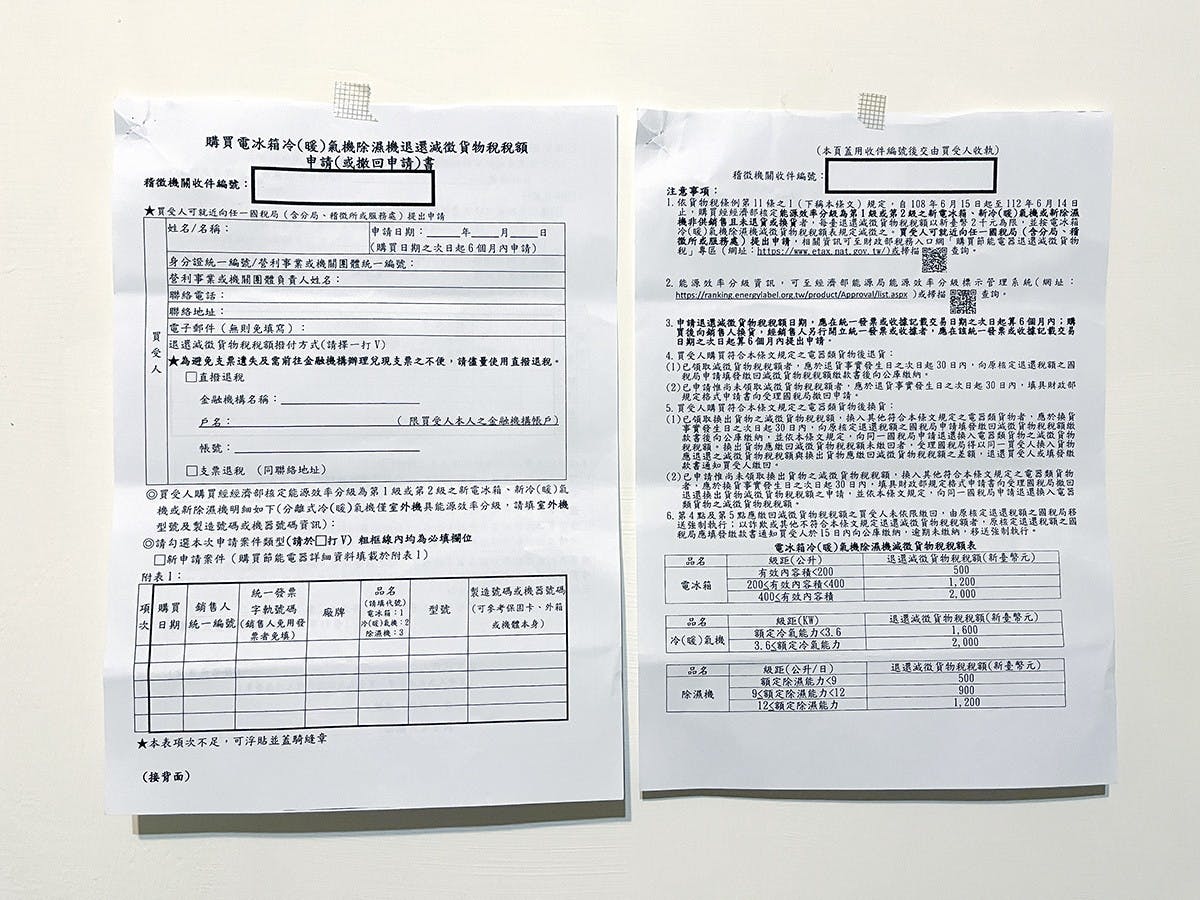 購買電冰箱冷(暖)氣機除濕機退還減徵貨物稅稅額
申請(或撤回申請)書
稽徵機關收件編號：
★買受人可就近向任一國稅局(含分局、稽徵所或服務處)提出申請
買受人
姓名/名稱：
申請日期：____年____月____日
(購買日期之次日起6個月內申請)
身分證統一編號/營利事業或機關團體統一編號：
營利事業或機關團體負責人姓名：
聯絡電話：
聯絡地址：
電子郵件(無則免填寫)：
退還減徵貨物稅稅額撥付方式(請擇一打V)
★為避免支票遺失及需前往金融機構辦理兌現支票之不便，請儘量使用直撥退稅。
□直撥退稅
金融機構名稱：
戶名： (限買受人本人之金融機構帳戶)
帳號：
□支票退稅 (同聯絡地址)
◎買受人購買經經濟部核定能源效率分級為第1級或第2級之新電冰箱、新冷(暖)氣
機或新除濕機明細如下(分離式冷(暖)氣機僅室外機具能源效率分級，請填室外機
型號及製造號碼或機器號碼資訊)：
◎請勾選本次申請案件類型(請於□打V) 粗框線內均為必填欄位
□新申請案件 (購買節能電器詳細資料填載於附表1)
附表1：
項次
購買日期
銷售人統一編號
統一發票字軌號碼(銷售人免用發票者免填)
廠牌
品名(請填代號)電冰箱:1 冷(暖)氣機:2 除濕機:3
型號
製造號碼或機器號碼(可參考保固卡、外箱或機體本身)
★本表項次不足，可浮貼並蓋騎縫章
(接背面)
(本頁蓋用收件編號後交由買受人收執)
稽徵機關收件編號：
注意事項：
1.依貨物稅條例第11條之1(下稱本條文)規定，自108年6月15日起至112年6月14日
止，購買經經濟部核定能源效率分級為第1級或第2級之新電冰箱、新冷(暖)氣機或新除濕
機非供銷售且未退貨或換貨者，每臺退還減徵貨物稅稅額以新臺幣2千元為限，並按電冰箱
冷(暖)氣機除濕機減徵貨物稅稅額表規定減徵之。買受人可就近向任一國稅局(含分局、稽
徵所或服務處)提出申請，相關資訊可至財政部稅務入口網「購買節能電器退還減徵貨物
稅」專區(網址：https://www.etax.nat.gov.tw/)或掃描 查詢。
2.能源效率分級資訊，可至經濟部能源局能源效率分級標示管理系統(網址：
https://ranking.energylabel.org.tw/product/Approval/list.aspx )或掃描 查詢。
3.申請退還減徵貨物稅稅額日期，應在統一發票或收據記載交易日期之次日起算6個月內；購
買後向銷售人換貨，經銷售人另行開立統一發票或收據者，應在該統一發票或收據記載交易
日期之次日起算6個月內提出申請。
4.買受人購買符合本條文規定之電器類貨物後退貨：
(1)已領取減徵貨物稅稅額者，應於退貨事實發生日之次日起30日內，向原核定退還稅額之國
稅局申請填發繳回減徵貨物稅稅額繳款書後向公庫繳納。
(2)已申請惟尚未領取減徵貨物稅稅額者，應於退貨事實發生日之次日起30日內，填具財政部
規定格式申請書向受理國稅局撤回申請。
5.買受人購買符合本條文規定之電器類貨物後換貨：
(1)已領取換出貨物之減徵貨物稅稅額，換入其他符合本條文規定之電器類貨物者，應於換貨
事實發生日之次日起30日內，向原核定退還稅額之國稅局申請填發繳回減徵貨物稅稅額繳
款書後向公庫繳納，並依本條文規定，向同一國稅局申請退還換入電器類貨物之減徵貨物
稅稅額。換出貨物應繳回減徵貨物稅稅額者未繳回者，受理國稅局得以同一買受人換入貨物
應退還之減徵貨物稅稅額與換出貨物應繳回減徵貨物稅稅額之差額，退還買受人或填發繳
款書通知買受人繳回。
(2)已申請惟尚未領取換出貨物之減徵貨物稅稅額，換入其他符合本條文規定之電器類貨物
者，應於換貨事實發生日之次日起30日內，填具財政部規定格式申請書向受理國稅局撤回
退還換出貨物減徵貨物稅稅額之申請，並依本條文規定，向同一國稅局申請退還換入電器
類貨物之減徵貨物稅稅額。
6.第4點及第5點應繳回減徵貨物稅稅額之買受人未依限繳回，由原核定退還稅額之國稅局移
送強制執行；以詐欺或其他不符合本條文規定退還減徵貨物稅稅額者，原核定退還稅額之國
稅局應填發繳款書通知買受人於15日內向公庫繳納，逾期未繳納，移送強制執行。
電冰箱冷(暖)氣機除濕機減徵貨物稅稅額表
品名 級距(公升) 退還減徵貨物稅稅額(新臺幣元)
電冰箱
有效內容積<200 500
200≤有效內容積<400 1,200
400≤有效內容積 2,000
品名 級距(KW) 退還減徵貨物稅稅額(新臺幣元)
冷(暖)氣機
額定冷氣能力<3.6 1,600
3.6≤額定冷氣能力 2,000
品名 級距(公升/日) 退還減徵貨物稅稅額(新臺幣元)
除濕機
額定除濕能力<9 500
9≤額定除濕能力<12 900
12≤額定除濕能力 1,200